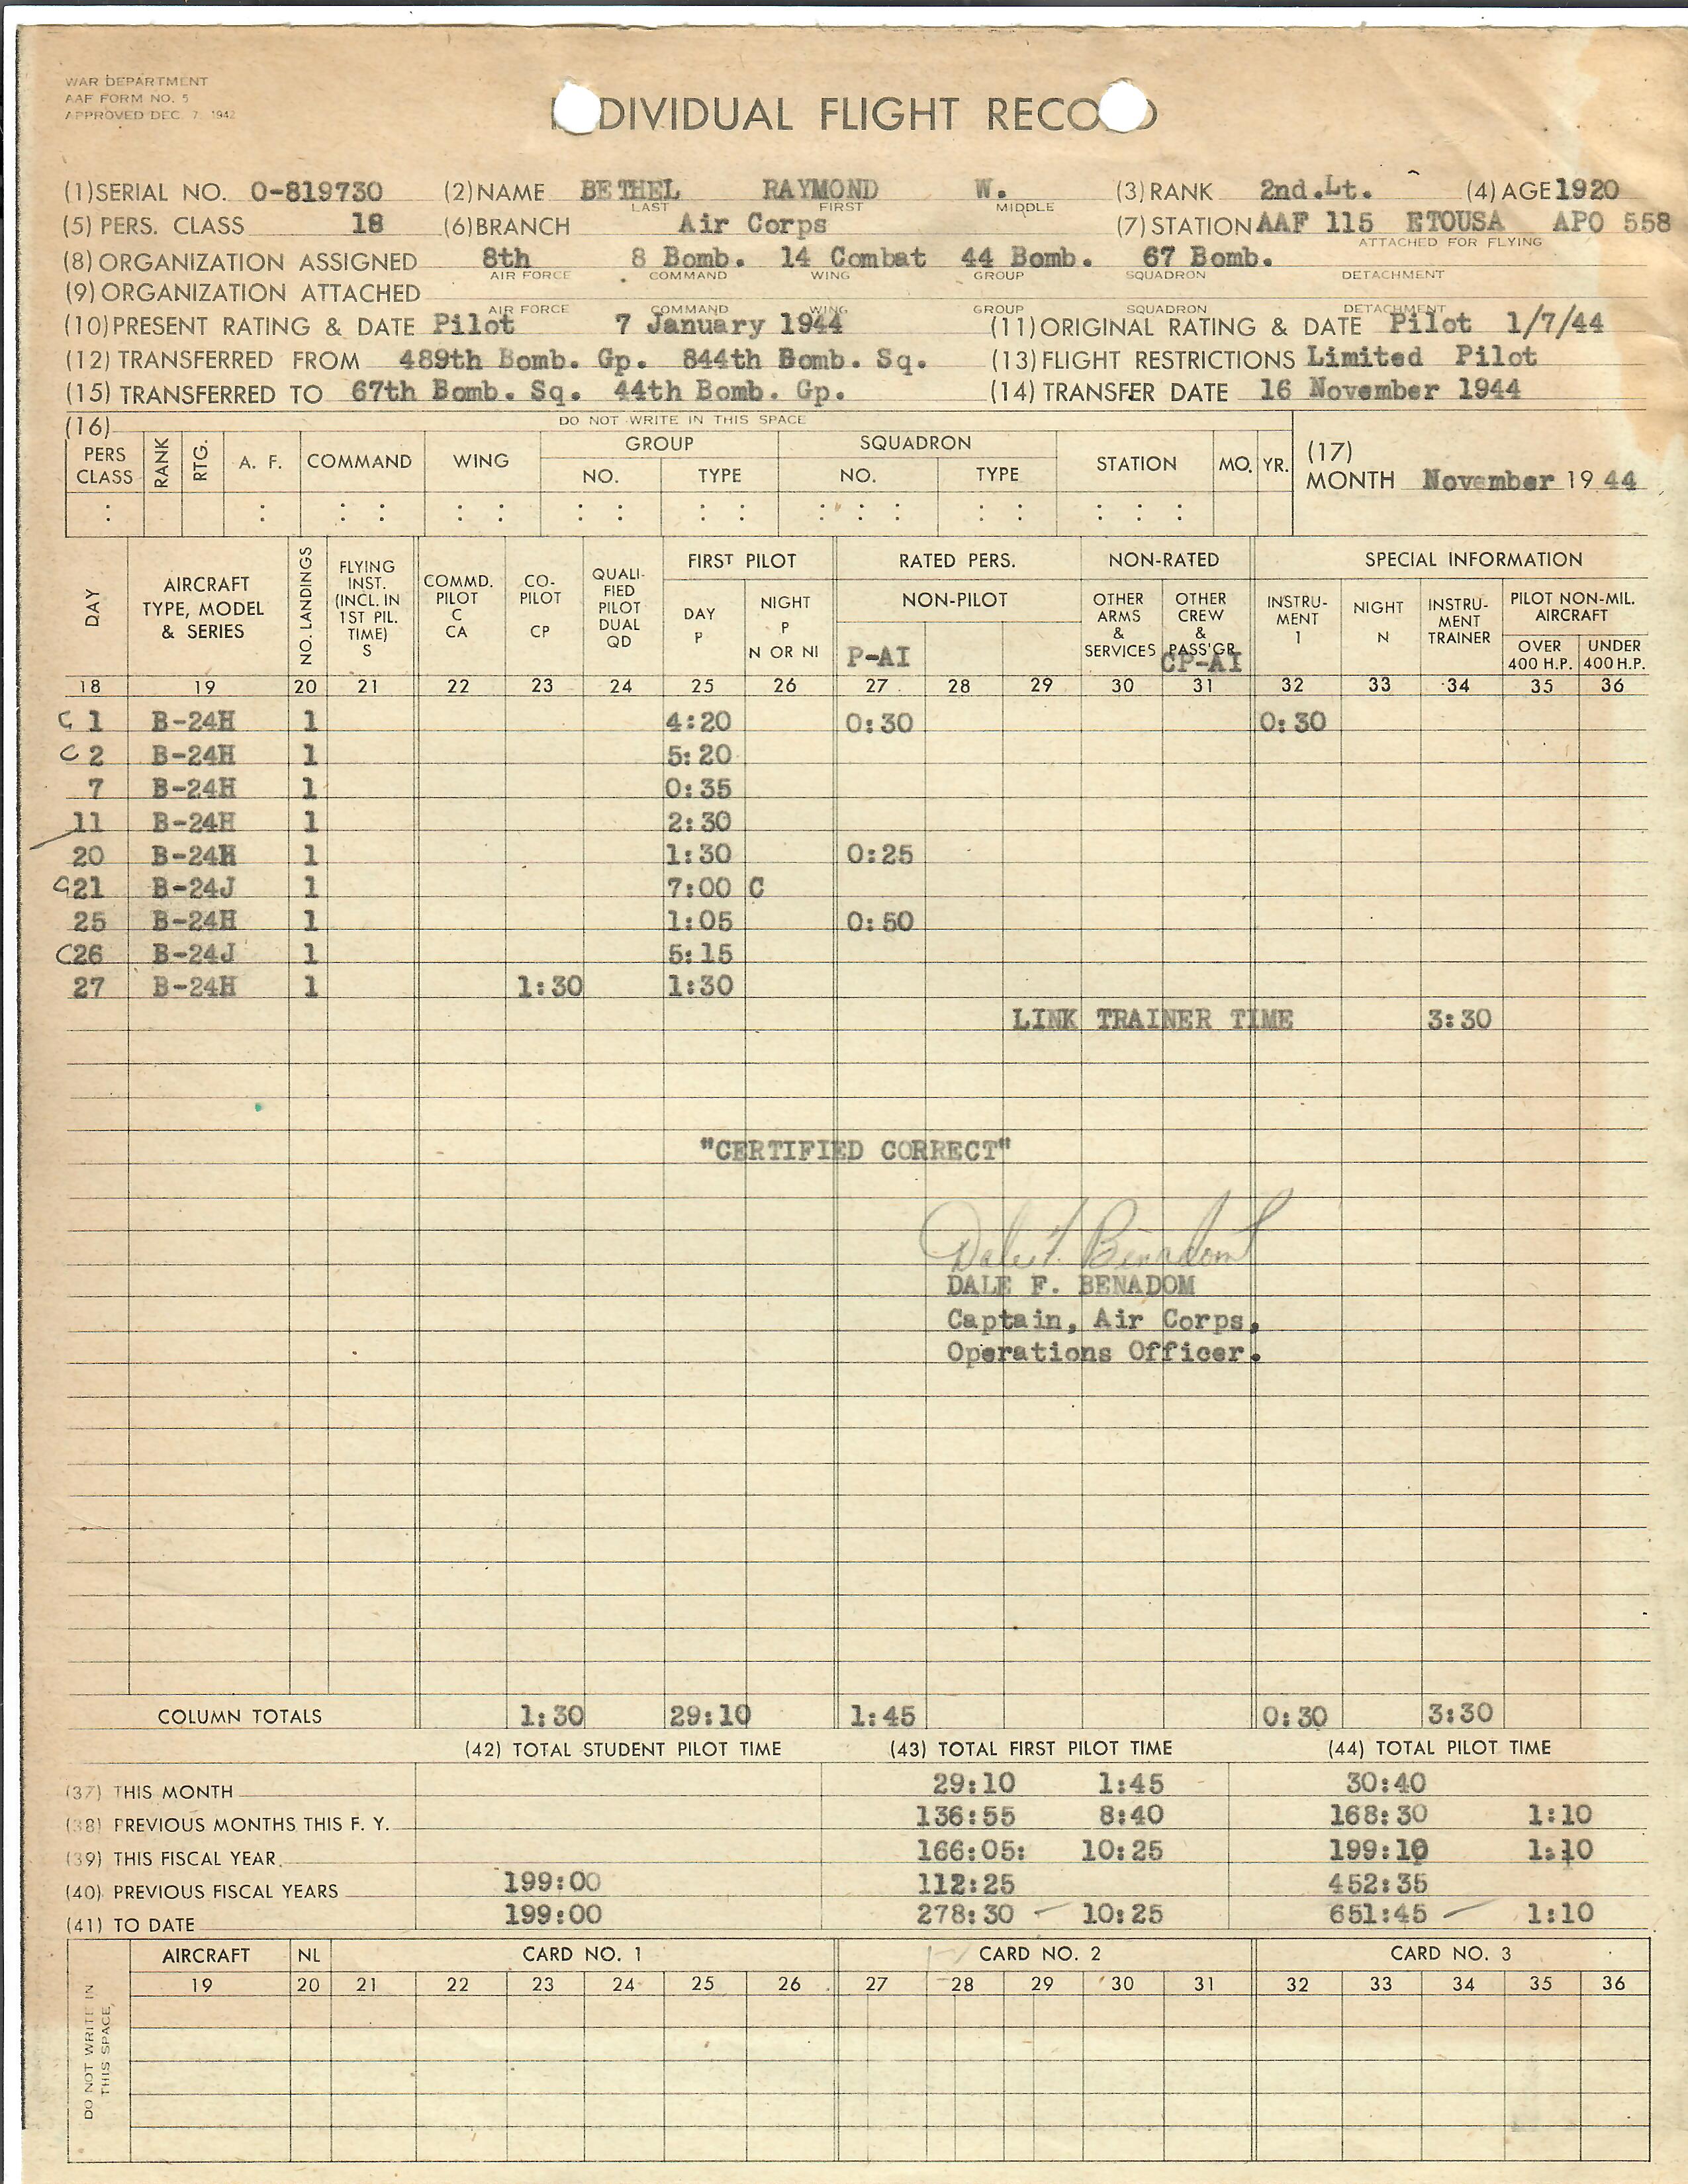 WAR DEPARTMENT
AAF FORM NO. 5
APPROVED DEC. 7, 1942
INDIVIDUAL FLIGHT RECORD
(1) SERIAL NO. O-819730 (2) NAME BETHEL RAYMOND W. (3) RANK 2nd.Lt. (4) AGE 1920
LAST FIRST MIDDLE
(5) PERS. CLASS 18 (6) BRANCH Air Corps (7) STATION AAF 115 ETOUSA APO 558
ATTACHED FOR FLYING
(8) ORGANIZATION ASSIGNED 8th 8 Bomb. 14 Combat 44 Bomb. 67 Bomb.
AIR FORCE COMMAND WING GROUP SQUADRON DETACHMENT
(9) ORGANIZATION ATTACHED
AIR FORCE COMMAND WING GROUP SQUADRON DETACHMENT
(10) PRESENT RATING & DATE Pilot 7 January 1944 (11) ORIGINAL RATING & DATE Pilot 1/7/44
(12) TRANSFERRED FROM 489th Bomb. Gp. 844th Bomb. Sq. (13) FLIGHT RESTRICTIONS Limited Pilot
(15) TRANSFERRED TO 67th Bomb. Sq. 44th Bomb. Gp. (14) TRANSFER DATE 16 November 1944
(16) DO NOT WRITE IN THIS SPACE
PERS CLASS RANK RTG. A. F. COMMAND WING GROUP NO. TYPE SQUADRON NO. TYPE STATION MO. YR. (17) MONTH November 19 44
DAY AIRCRAFT TYPE, MODEL & SERIES NO. LANDINGS FLYING INST. (INCL. IN 1ST PIL. TIME) S COMMD. PILOT C CA CO-PILOT CP QUALI-FIED PILOT DUAL QD FIRST PILOT DAY P NIGHT P N OR NI RATED PERS. NON-PILOT P-AI NON-RATED OTHER ARMS & SERVICES OTHER CREW & PASS'GR CP-AI SPECIAL INFORMATION INSTRU-MENT I NIGHT N INSTRU-MENT TRAINER PILOT NON-MIL. AIRCRAFT OVER 400 H.P. UNDER 400 H.P.
18 19 20 21 22 23 24 25 26 27 28 29 30 31 32 33 34 35 36
C 1 B-24H 1 4:20 0:30 0:30
C 2 B-24H 1 5:20
7 B-24H 1 0:35
11 B-24H 1 2:30
20 B-24H 1 1:30 0:25
C 21 B-24J 1 7:00 C
25 B-24H 1 1:05 0:50
C 26 B-24J 1 5:15
27 B-24H 1 1:30 1:30
LINK TRAINER TIME 3:30
"CERTIFIED CORRECT"
Dale F. Benadom
DALE F. BENADOM
Captain, Air Corps,
Operations Officer.
COLUMN TOTALS 1:30 29:10 1:45 0:30 3:30
(42) TOTAL STUDENT PILOT TIME (43) TOTAL FIRST PILOT TIME (44) TOTAL PILOT TIME
(37) THIS MONTH 29:10 1:45 30:40
(38) PREVIOUS MONTHS THIS F. Y. 136:55 8:40 168:30 1:10
(39) THIS FISCAL YEAR 166:05: 10:25 199:10 1:10
(40) PREVIOUS FISCAL YEARS 199:00 112:25 452:35
(41) TO DATE 199:00 278:30 10:25 651:45 1:10
DO NOT WRITE IN THIS SPACE.
AIRCRAFT NL CARD NO. 1 CARD NO. 2 CARD NO. 3
19 20 21 22 23 24 25 26 27 28 29 30 31 32 33 34 35 36